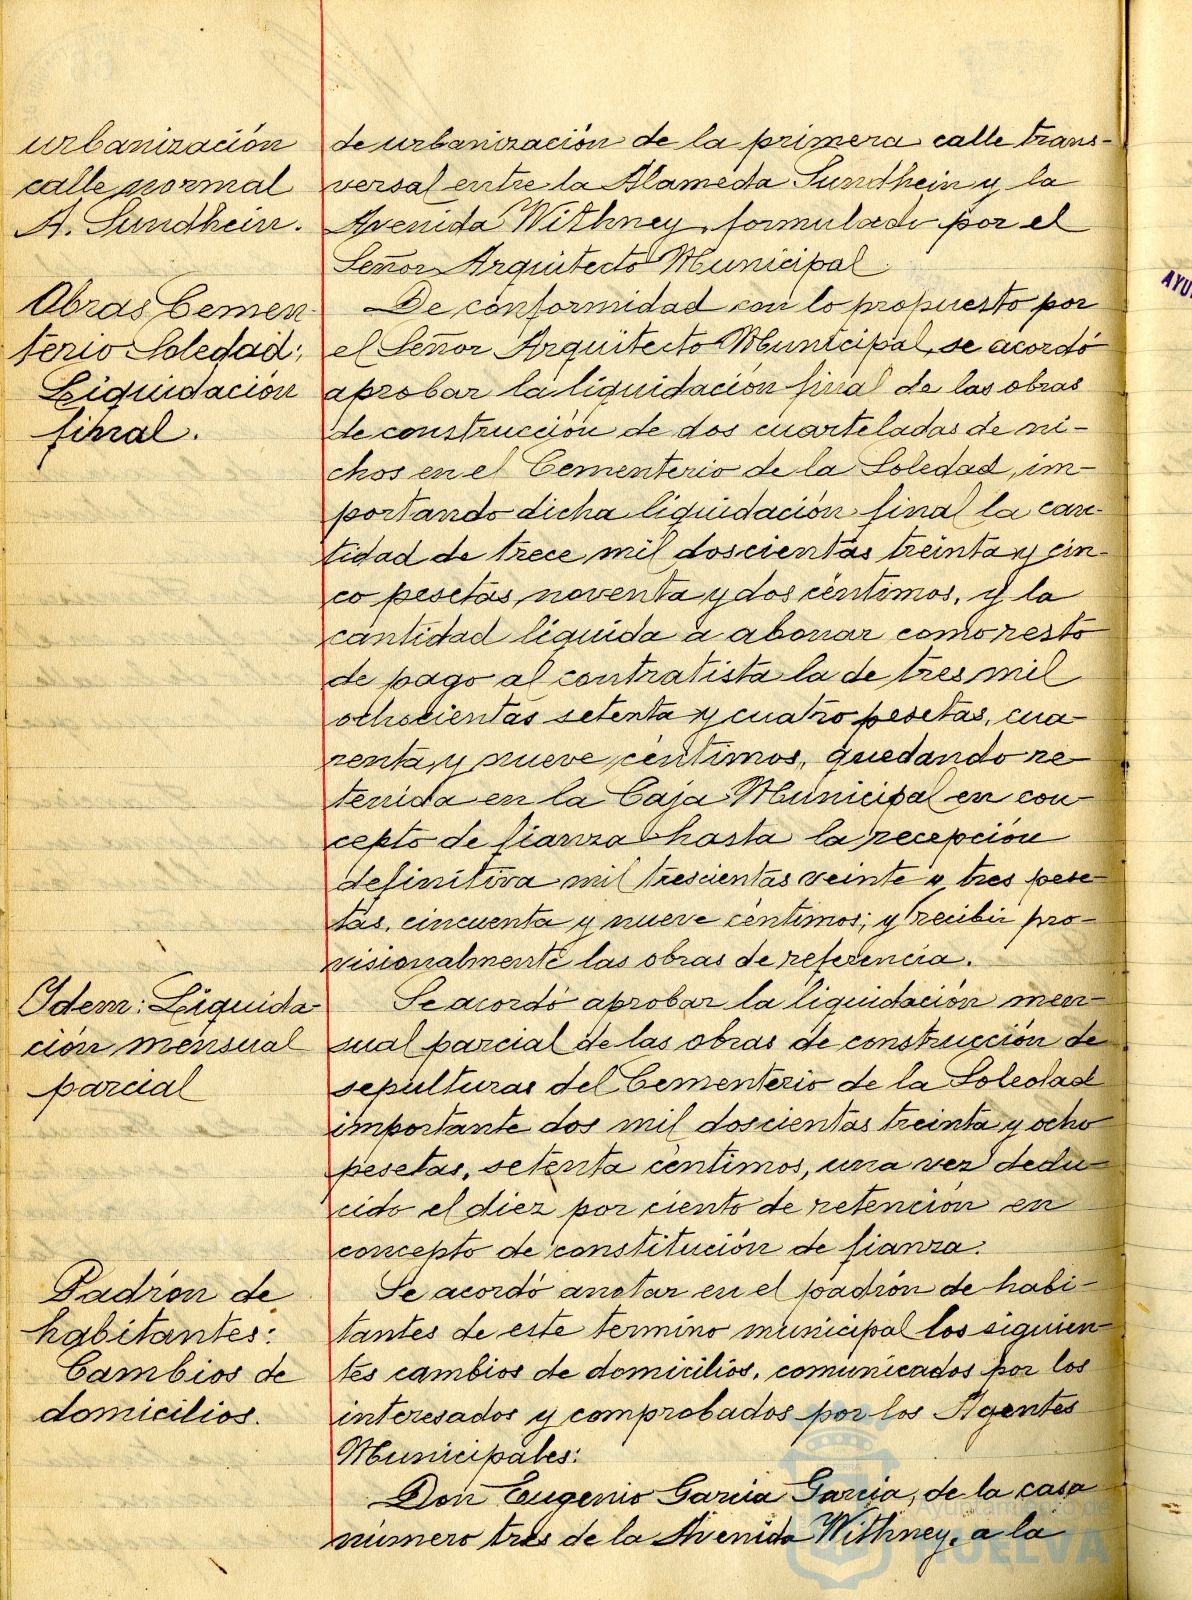 urbanización
calle normal
A. Sundhein.
de urbanización de la primera calle trans-
versal entre la Alameda Sundhein y la
Avenida Withney, formulado por el
Señor Arquitecto Municipal.
Obras Cemen-
terio Soledad:
Liquidación
final.
De conformidad con lo propuesto por
el Señor Arquitecto Municipal, se acordó
aprobar la liquidación final de las obras
de construcción de dos cuarteladas de ni-
chos en el Cementerio de la Soledad, im-
portando dicha liquidación final la can-
tidad de trece mil doscientas treinta y cin-
co pesetas, noventa y dos céntimos, y la
cantidad líquida a abonar como resto
de pago al contratista la de tres mil
ochocientas setenta y cuatro pesetas, cua-
renta y nueve céntimos, quedando re-
tenida en la Caja Municipal en con-
cepto de fianza hasta la recepción
definitiva mil trescientas veinte y tres pese-
tas, cincuenta y nueve céntimos; y recibir pro-
visionalmente las obras de referencia.
Idem: Liquida-
ción mensual
parcial
Se acordó aprobar la liquidación men-
sual parcial de las obras de construcción de
sepulturas del Cementerio de la Soledad
importante dos mil doscientas treinta y ocho
pesetas, setenta céntimos, una vez dedu-
cido el diez por ciento de retención en
concepto de constitución de fianza.
Padrón de
habitantes:
Cambios de
domicilios.
Se acordó anotar en el padrón de habi-
tantes de este termino municipal los siguien-
tes cambios de domicilios, comunicados por los
interesados y comprobados por los Agentes
Municipales:
Don Eugenio Garcia Garcia, de la casa
número tres de la Avenida Withney, a la
Ayuntamiento de
HUELVA